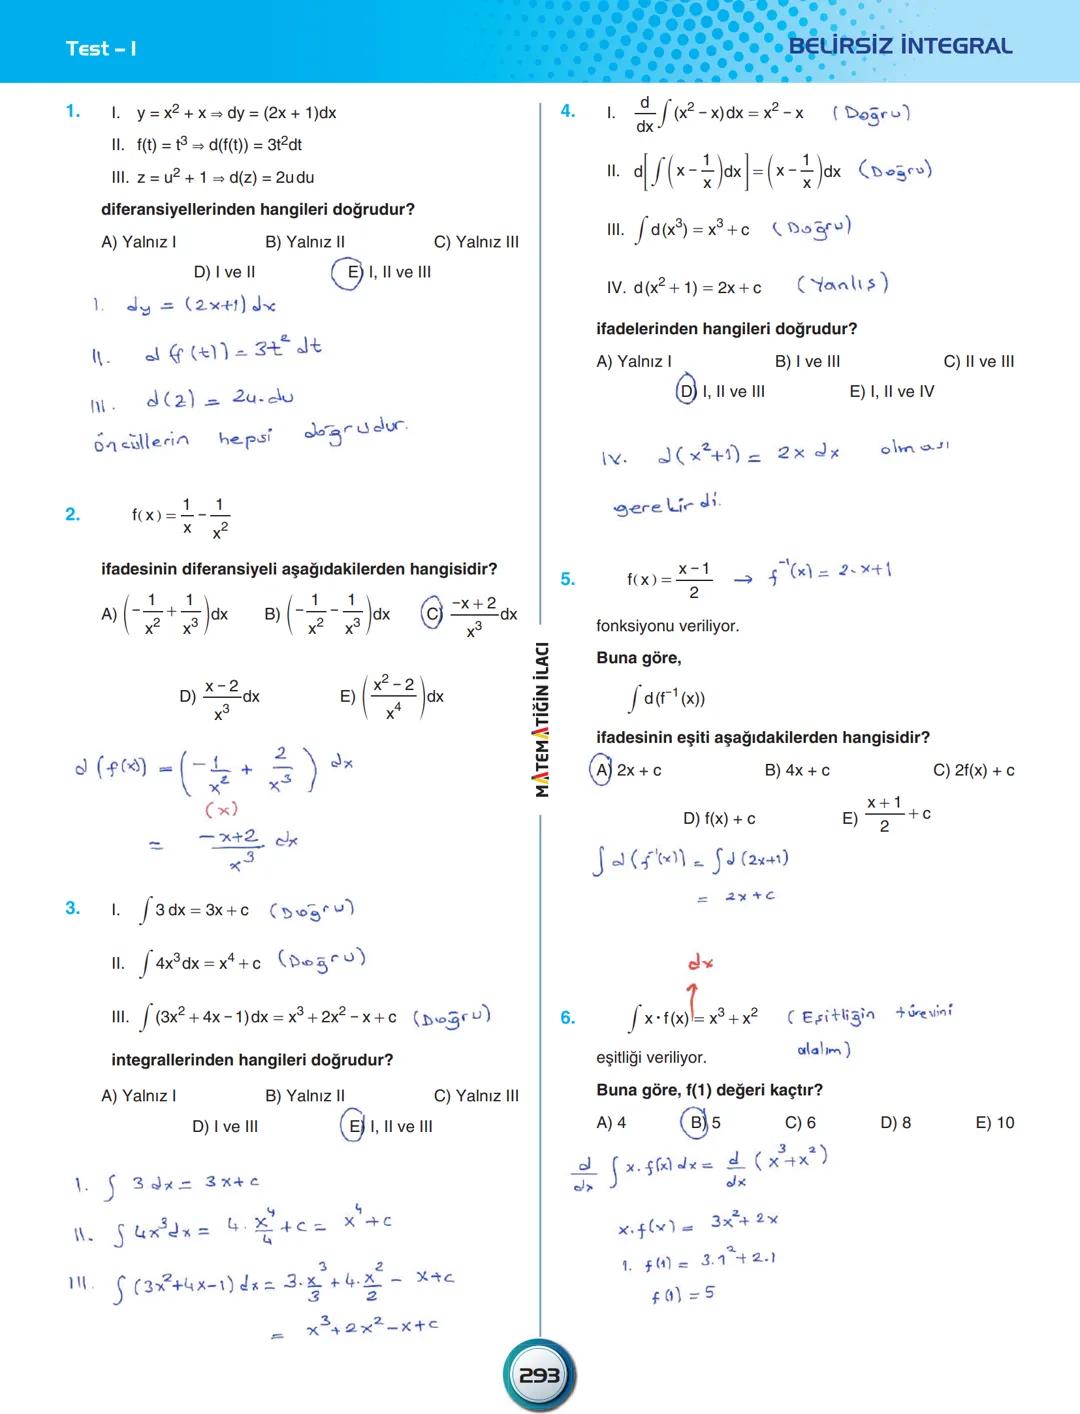 Test – I
BELİRSİZ İNTEGRAL
1. I. y = x² + x ⇒ dy = (2x + 1)dx
II. f(t) = t³ ⇒ d(f(t)) = 3t²dt
III. z = u² + 1 ⇒ d(z) = 2u du
diferansiyellerinden hangileri doğrudur?
A) Yalnız I B) Yalnız II C) Yalnız III
D) I ve II E) I, II ve III
I. dy = (2x+1) dx
II. d(f(t)) = 3t² dt
III. d(z) = 2u.du
öncüllerin hepsi doğrudur.
2. f(x) = 1/x - 1/x²
ifadesinin diferansiyeli aşağıdakilerden hangisidir?
A) (-1/x² + 1/x³)dx B) (-1/x² - 1/x³)dx C) (-x + 2)/x³ dx
D) (x - 2)/x³ dx E) ((x² - 2)/x⁴)dx
d(f(x)) = (-1/x² + 2/x³) dx
(x)
= (-x+2)/x³ dx
3. I. ∫3 dx = 3x + c (Doğru)
II. ∫4x³dx = x⁴ + c (Doğru)
III. ∫(3x² + 4x - 1)dx = x³ + 2x² - x + c (Doğru)
integrallerinden hangileri doğrudur?
A) Yalnız I B) Yalnız II C) Yalnız III
D) I ve III E) I, II ve III
I. ∫ 3 dx = 3x + c
II. ∫ 4x³dx = 4. x⁴/4 + c = x⁴ + c
III. ∫ (3x²+4x-1) dx = 3.x³/3 + 4.x²/2 - x+c
= x³+2x²-x+c
MATEMATİĞİN İLACI
4. I. d/dx ∫(x² - x)dx = x² - x (Doğru)
II. d[∫(x - 1/x)dx] = (x - 1/x)dx (Doğru)
III. ∫d(x³) = x³ + c (Doğru)
IV. d(x² + 1) = 2x + c (Yanlış)
ifadelerinden hangileri doğrudur?
A) Yalnız I B) I ve III C) II ve III
D) I, II ve III E) I, II ve IV
IV. d(x²+1) = 2x dx olması
gerekirdi.
5. f(x) = (x - 1)/2 → f⁻¹(x) = 2.x+1
fonksiyonu veriliyor.
Buna göre,
∫d(f⁻¹(x))
ifadesinin eşiti aşağıdakilerden hangisidir?
A) 2x + c B) 4x + c C) 2f(x) + c
D) f(x) + c E) (x + 1)/2 + c
∫d(f⁻¹(x)) = ∫d(2x+1)
= 2x+c
dx
6. ∫x·f(x) = x³ + x² (Eşitliğin türevini
alalım)
eşitliği veriliyor.
Buna göre, f(1) değeri kaçtır?
A) 4 B) 5 C) 6 D) 8 E) 10
d/dx ∫x.f(x)dx = d/dx (x³+x²)
x.f(x) = 3x²+2x
1. f(1) = 3.1²+2.1
f(1) = 5
293